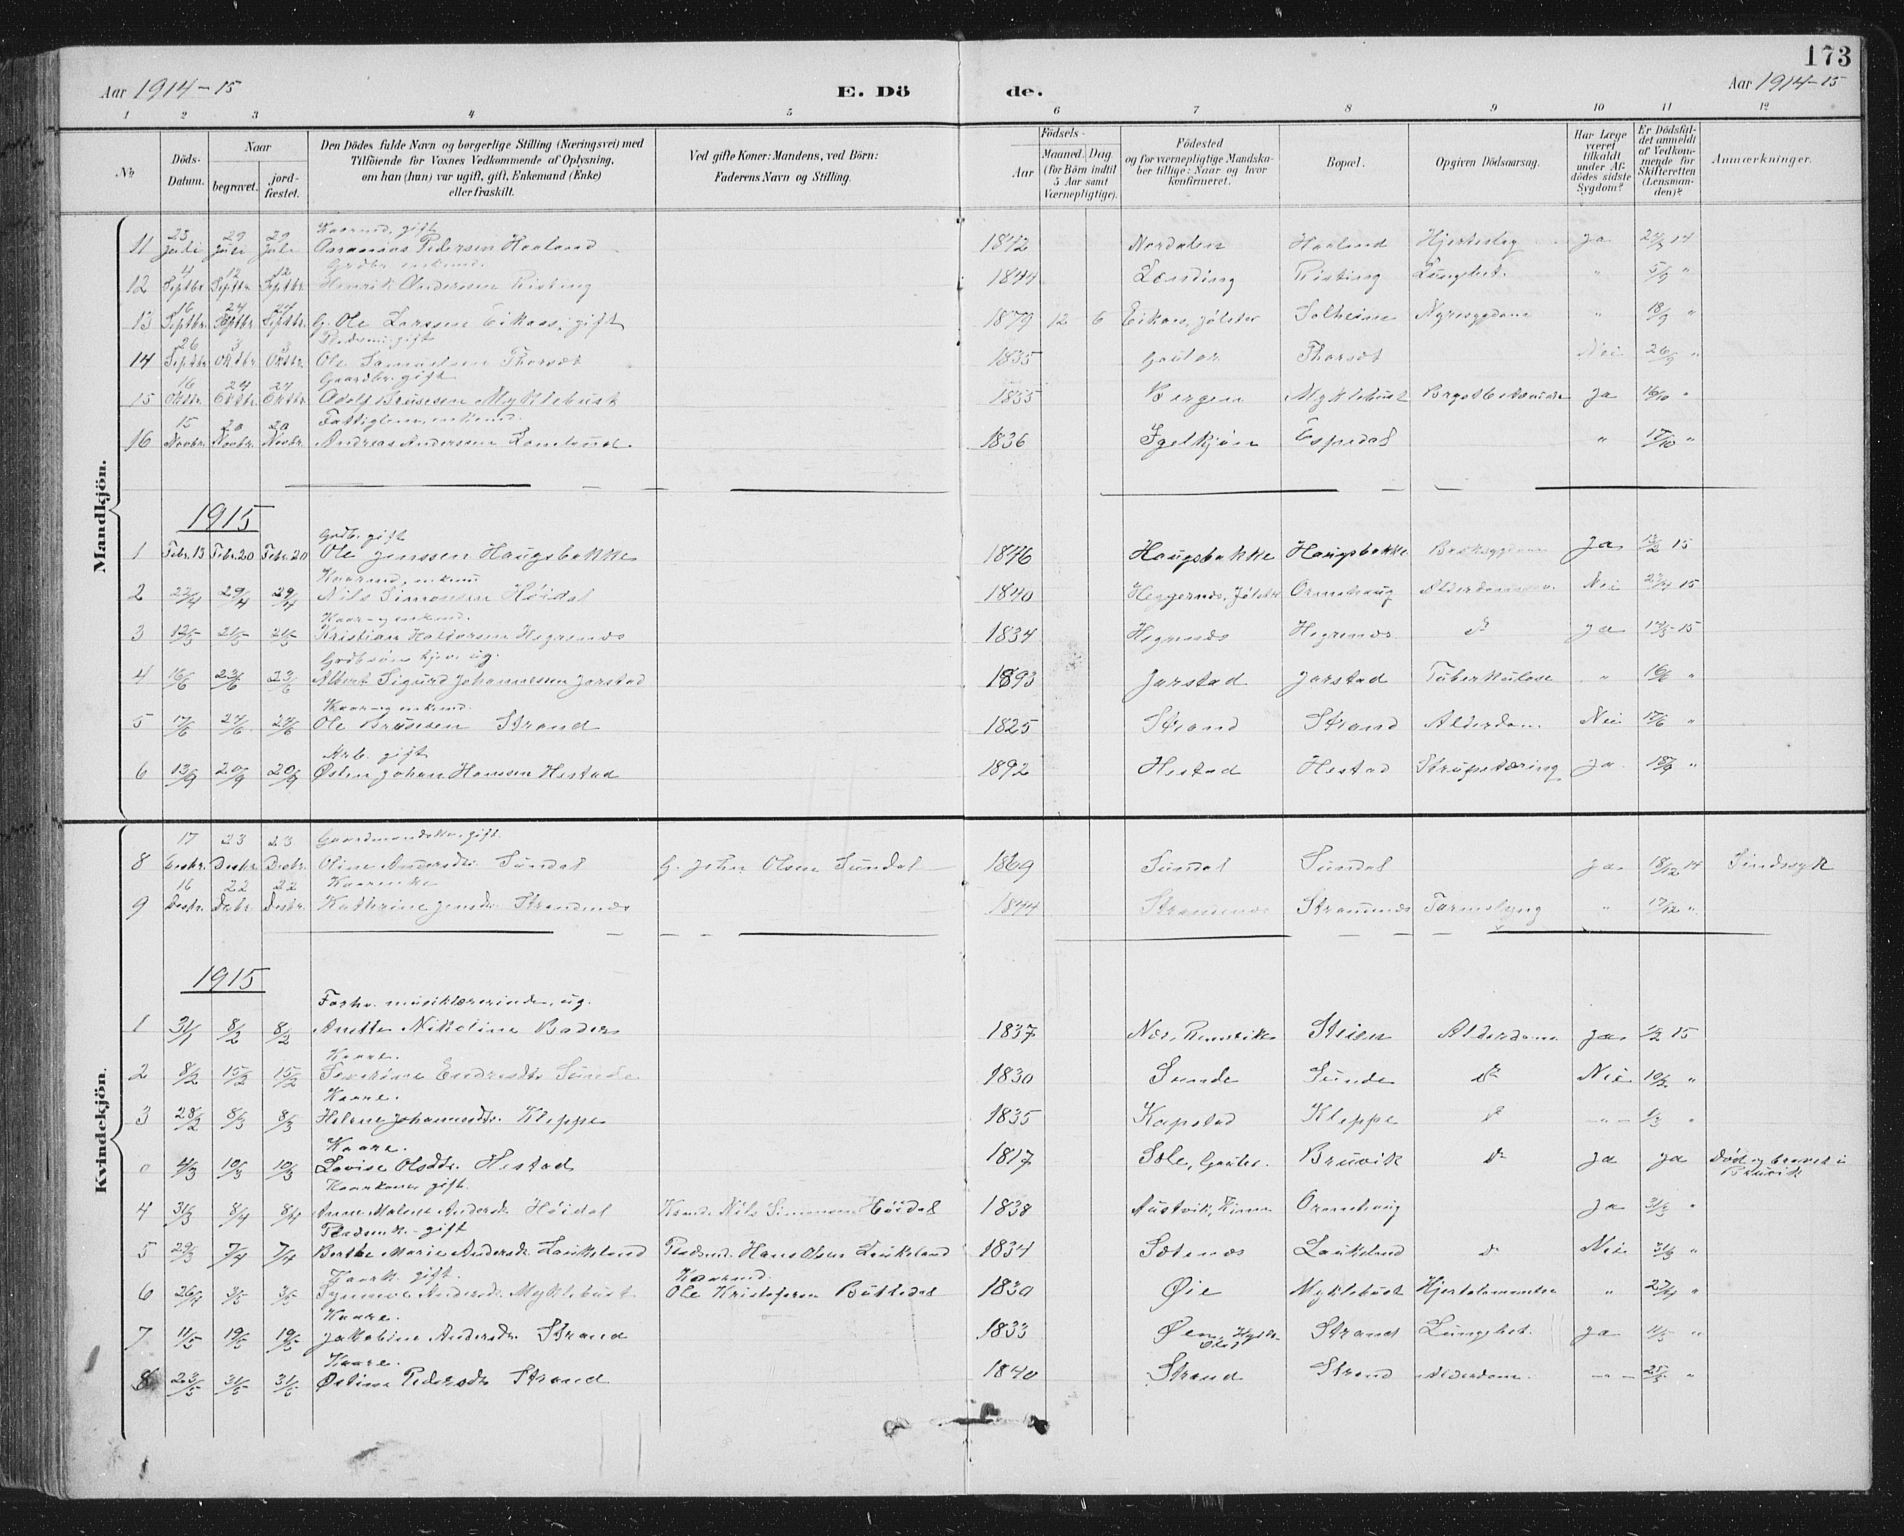 173
Aar 1914-15
E. Dö
de.
Aar 1914-15
1 2 3 4 5 6 7 8 9 10 11 12
№
Döds-Datum.
Naar
begravet.
jord-fæstet.
Den Dödes fulde Navn og borgerlige Stilling (Næringsvei) med
Tilföiende for Voxnes Vedkommende af Oplysning,
om han (hun) var ugift, gift, Enkemand (Enke)
eller fraskilt.
Ved gifte Koner: Mandens, ved Börn:
Faderens Navn og Stilling.
Födsels-
Aar
Maaned. Dag
(for Börn indtil
5 Aar samt
Værnepligtige).
Födested
og for værnepligtige Mandska-
ber tillige: Naar og hvor
konfirmeret.
Bopæl.
Opgiven Dödsaarsag.
Har Læge
været
tilkaldt
under Af-
dödes sidste
Sygdom?
Er Dödsfal-
det anmeldt
af Vedkom-
mende for
Skifteretten
(Lensman-
den)?
Anmærkninger.
Mandkjön.
23 29 29 Kaarmd. gift
11 Juli Juli Juli Ananias Pedersen Haaland 1842 Nordalen Haaland Hjerteslag Ja 14
4 12 12 Grdbr. enkemd.
12 Septbr. Septbr. Septbr. Henrik Andersen Risting 1844 Lænding Risting Lungebet. " 5/9 "
16 24 24
13 Septbr. Septbr. Septbr. G. Ole Larssen Eikaas, gift 1879 12 6 Eikaas, Jølster Solheim Nyresygdom " 18/9 "
26 3 3 Pladsm. gift
14 Septbr. Oktbr. Oktbr. Ole Samuelsen Thorsæt 1835 Gaular Thorsæt Nei 26/9 "
16 24 24 Gaardbr. gift
15 Oktbr. Oktbr. Oktbr. Adolf Brusesen Myklebust 1855 Bergen Myklebust Ja 16/10 "
15 20 20 Fattiglem, enkemd.
16 Novbr. Novbr. Novbr. Andreas Andersen 1836 Igelkjøn Espedal " 17/10 "
1915
Grdb. gift
1 Febr. 13 Febr. 20 Febr. 20 Ole Jenssen Haugsbakke 1846 Haugsbakke Haugsbakke Ja 15
Kaarmd. enkem
2 29/4 29/4 Nils Simonsen Høidal 1840 Hegrenæs, Jølster Ormehaug Nei 15
Kaar- og enkemd.
3 12/5 21/5 21/5 Kristian Hegrenæs 1834 Hegrenæs Hegrenæs do Ja 15
Grdbsøn ug.
4 16/6 23/6 23/6 Albert Sigurd Johannesen Jarstad 1893 Jarstad Jarstad Tuberkulose " 16/6 "
Kaar- og enkemd.
5 17/6 24/6 24/6 Ole Brusesen Strand 1825 Strand Strand Alderdom Nei 17/6 "
Arb. gift
6 13/9 20/9 20/9 Østen Johan Hansen Hestad 1892 Hestad Hestad Strupetæring Ja "
Kvindekjön.
17 23 23 Gaardmandskn., gift
8 Desbr. Desbr. Desbr. Oline Andersdtr. Sundal G. John Olsen Sundal 1869 Sundal Sundal Ja 18/12 14 Sindssyk
16 22 22 Kaarenke
9 Desbr. Desbr. Desbr. Kathrine Jensdr. Strandenæs 1844 Tarmslyng " 17/12 "
1915
Forhv. musiklærerinde, ug.
1 31/1 8/2 8/2 Anette Nikoline Bader 1837 Steien Alderdom Ja 15
Kaare.
2 8/2 15/2 15/2 Severine Endresdtr. Sunde 1830 Sunde Sunde do Nei "
Kaare.
3 28/2 8/3 8/3 Helene Johannesdtr. Kleppe 1835 Kapstad Kleppe do - " - 1/3 "
Kaare.
0 4/3 10/3 10/3 Lovise Olsdtr. Hestad 1817 Sole, Gauler. Bruvik do Ja Ja Død og begravet i Bruvik
Kaarkone gift.
4 31/3 8/4 8/4 Anne Malene Andersdr. Høidal Kaarmd. Nils Simonsen Høidal 1838 Austvik, Kinn Ormehaug Ja 31/3 "
Pladsmk. gift
5 29/3 7/4 7/4 Berthe Marie Andersdr. Laukeland Pladsmd. Hans Olsen Laukeland 1834 Sætenæs Laukeland do Nei 31/3 "
Kaark. gift. Kaarmd.
6 26/4 3/5 3/5 Synneve Andersdr. Myklebust Ole Kristofersen Bøttedal 1830 Øie Myklebust Hjertelammelse " 27/4 "
Kaare.
7 11/5 19/5 19/5 Jakobine Andersdr. Strand 1833 Øen, Strand Lungebet. Ja 11/5 "
Kaare.
8 23/5 31/5 31/5 Østine Pedersdr. Strand 1840 Strand Strand Alderdom. - " - 25/5 "